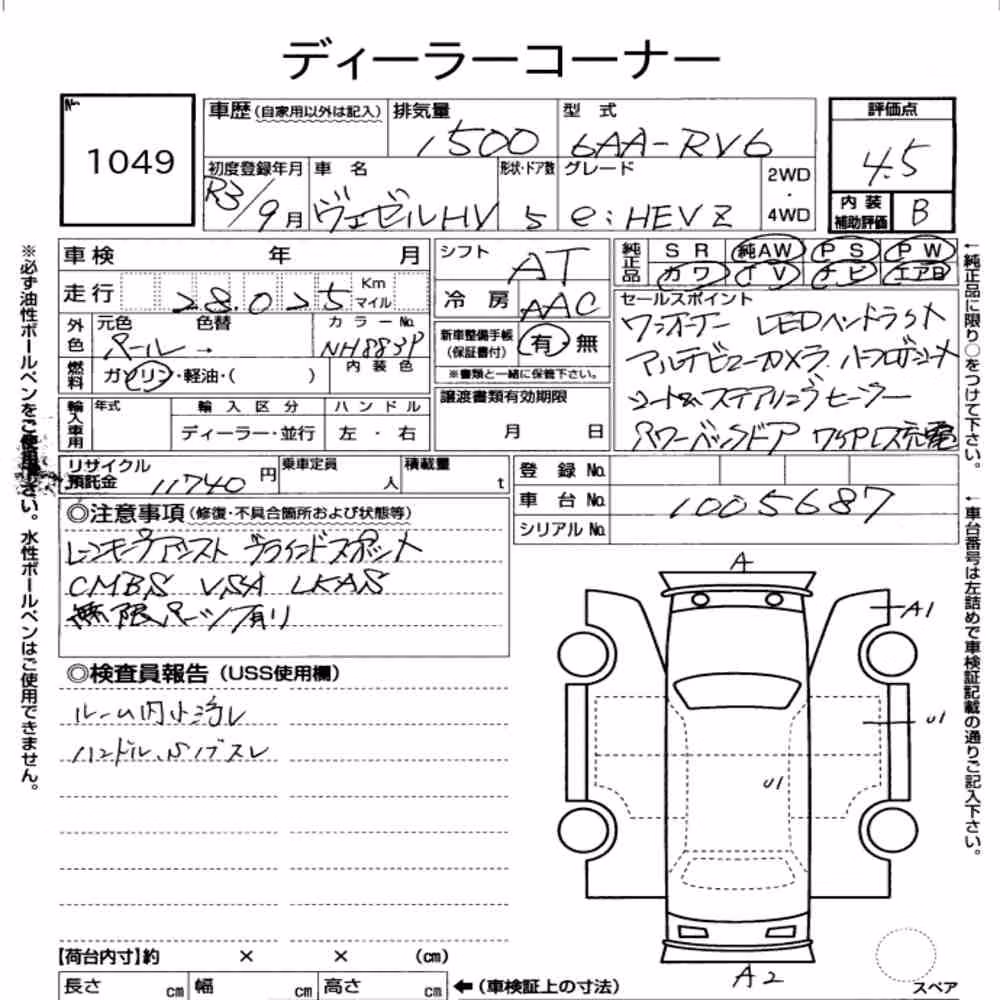 ディーラーコーナー
No. 1049
車歴(自家用以外は記入) 排気量 1500 型式 6AA-RV6
評価点 4.5
内装補助評価 B
初度登録年月 R3/9月 車名 ヴェゼルHV 形状・ドア数 5 グレード e:HEV Z 2WD・4WD
車検 年 月
走行 28.025 Km マイル
外色 元色 パール 色替 → カラーNo. NH883P
燃料 ガソリン・軽油・( ) 内装色
輸入車用 年式 輸入区分 ディーラー・並行 ハンドル 左・右
シフト AT
冷房 AAC
新車整備手帳(保証書付) 有 無
※書類と一緒に保管下さい。
譲渡書類有効期限 月 日
純正品 SR 純AW PS PW
カワ TV ナビ エアB
セールスポイント
ワンオーナー LEDヘッドライト
マルチビューカメラ ハーフレザーシート
シート&ステアリングヒーター
パワーバックドア ワイヤレス充電
リサイクル預託金 11740円 乗車定員 人 積載量 t
登録No.
車台No. 1005687
シリアルNo.
◎注意事項(修復・不具合箇所および状態等)
レーンキープアシスト ブラインドスポット
CMBS VSA LKAS
無限パーツ有り
◎検査員報告(USS使用欄)
ルーム内小汚レ
ハンドル、Sノブスレ
A
A1
U1
U1
A2
スペア
【荷台内寸】約 × × (cm)
長さ cm 幅 cm 高さ cm ←(車検証上の寸法)
※必ず油性ボールペンをご使用下さい。水性ボールペンはご使用できません。
←純正品に限り○をつけて下さい。
←車台番号は左詰めで車検証記載の通りご記入下さい。